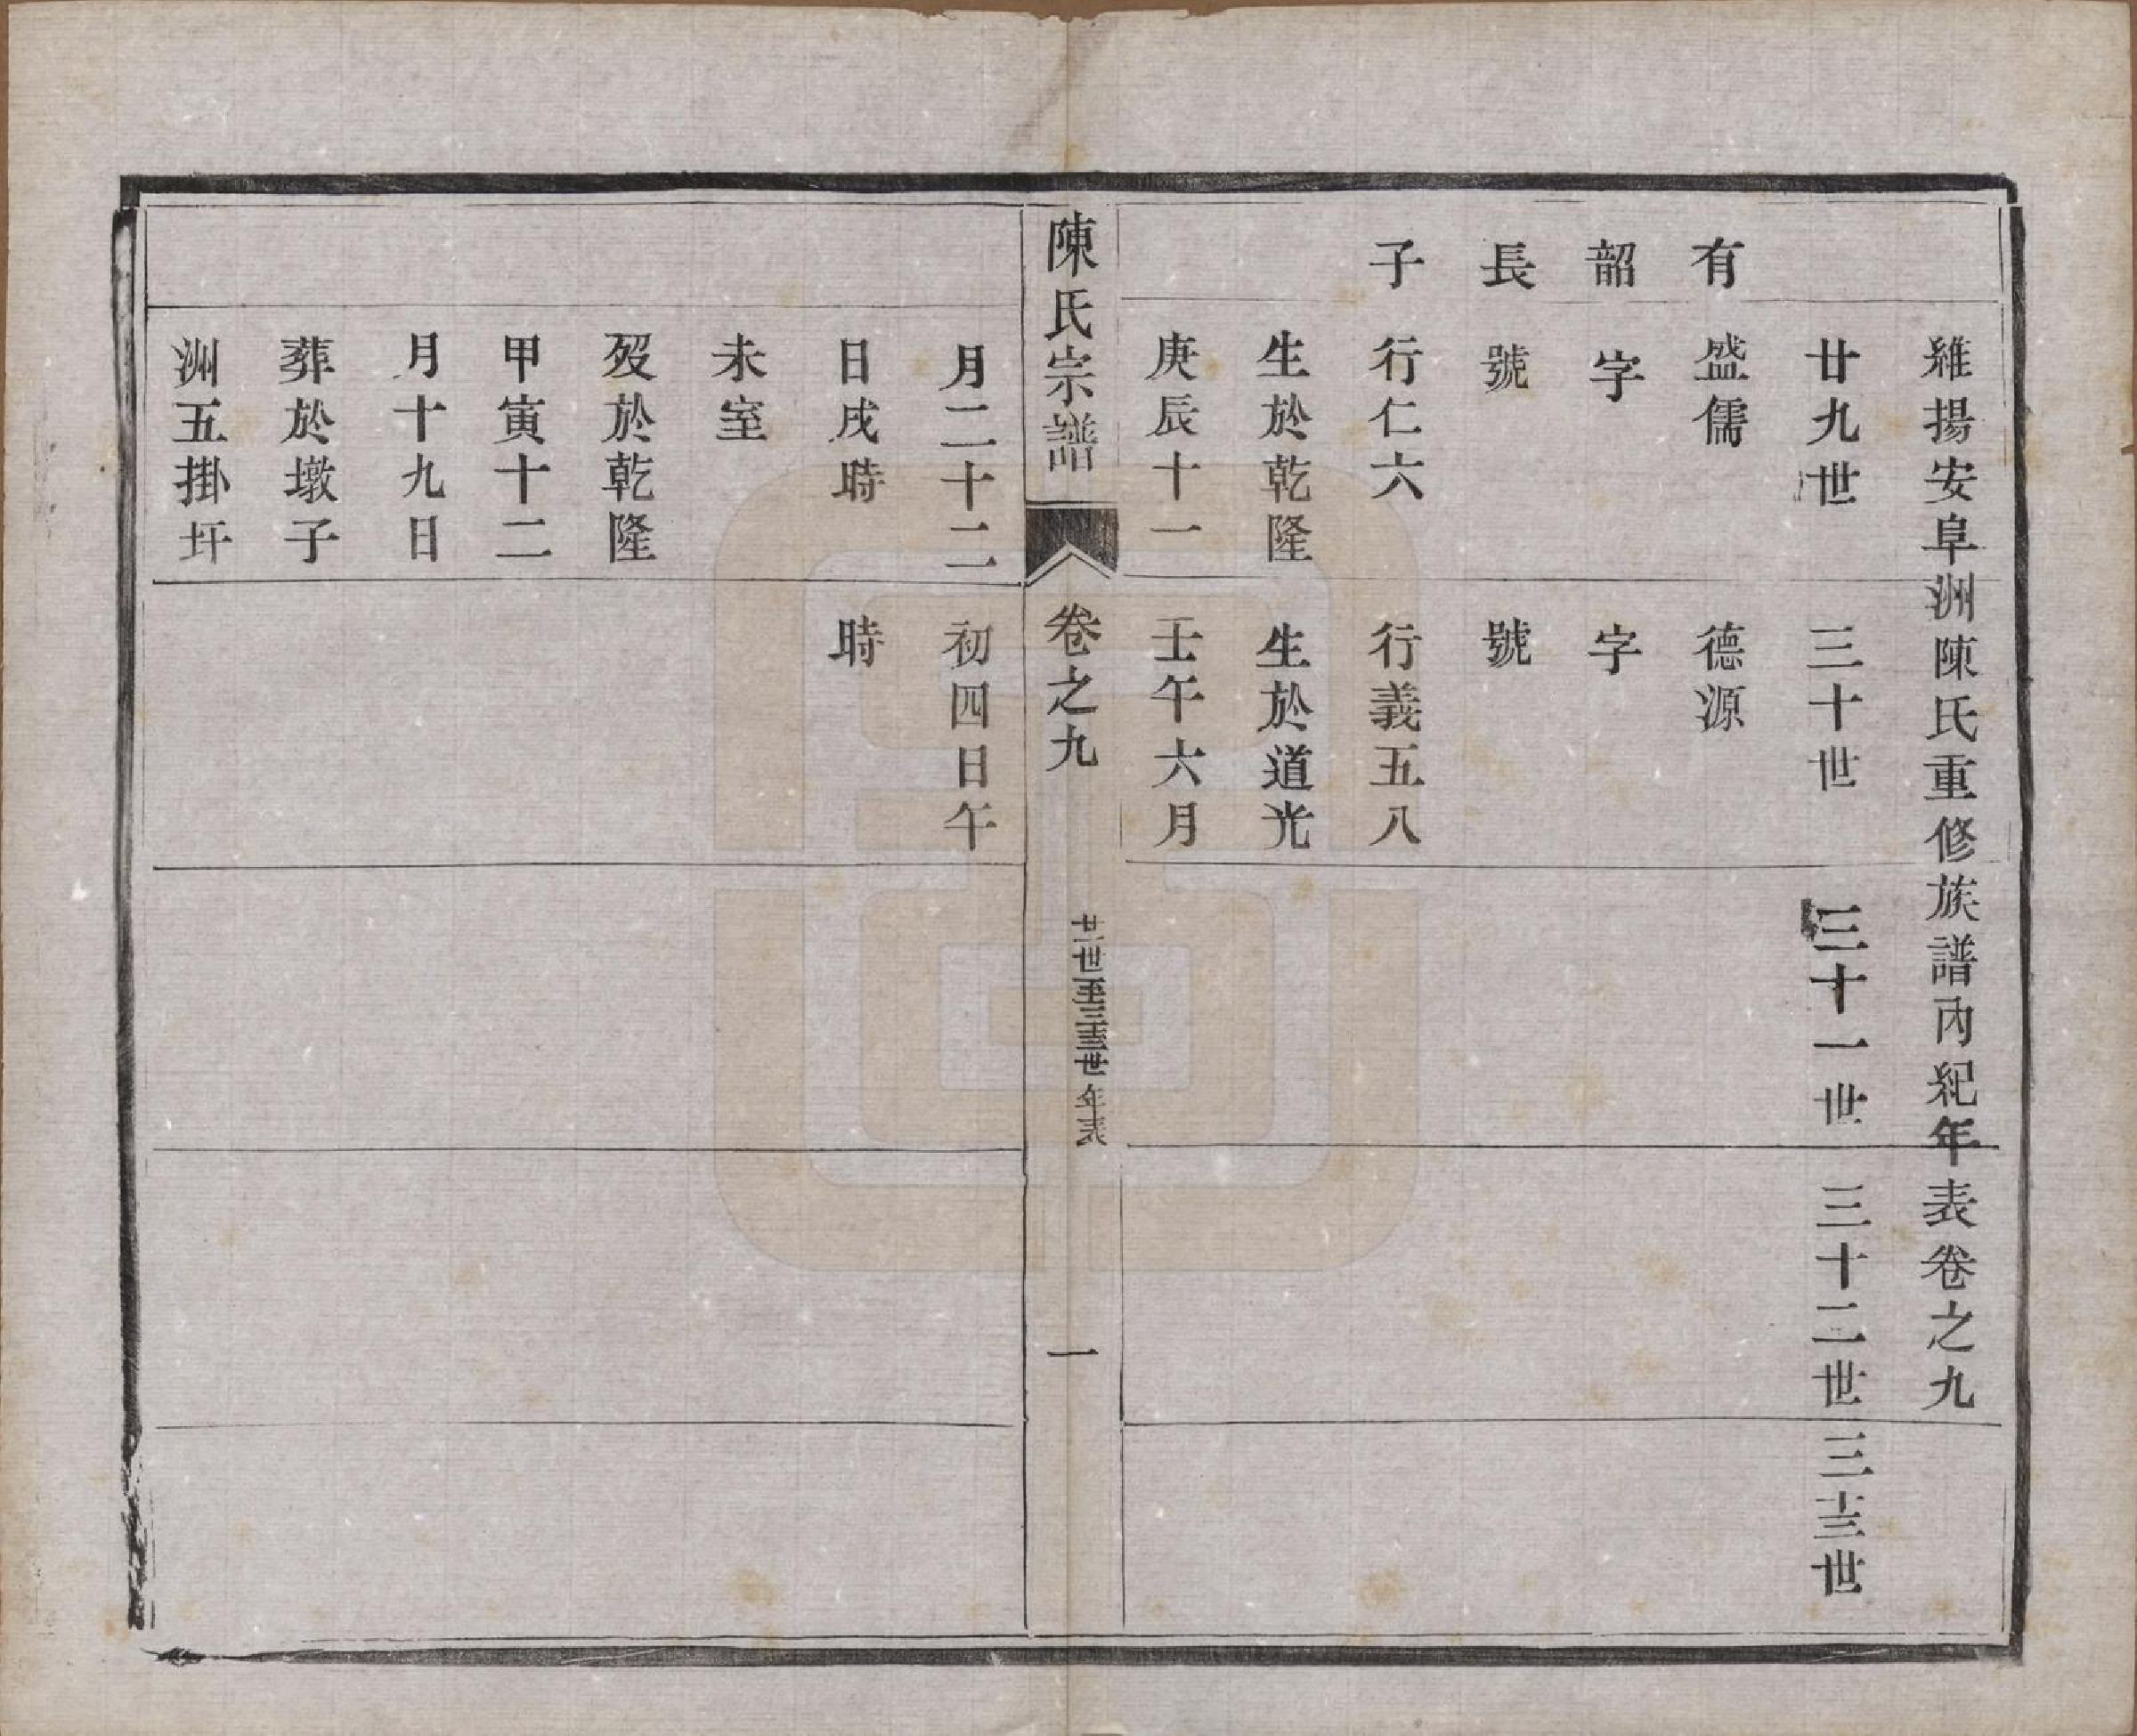 維揚安阜洲陳氏重修族譜內紀年表卷之九
廿九世
三十世
三十一世
三十二世
三十三世
有韶長子
盛儒
字
號
行仁六
生於乾隆
庚辰十一
月二十二
日戌時
未室
歿於乾隆
甲寅十二
月十九日
葬於墩子
洲五掛圩
德源
字
號
行義五八
生於道光
壬午六月
初四日午
時
陳氏宗譜
卷之九
世至三十三世年表
一